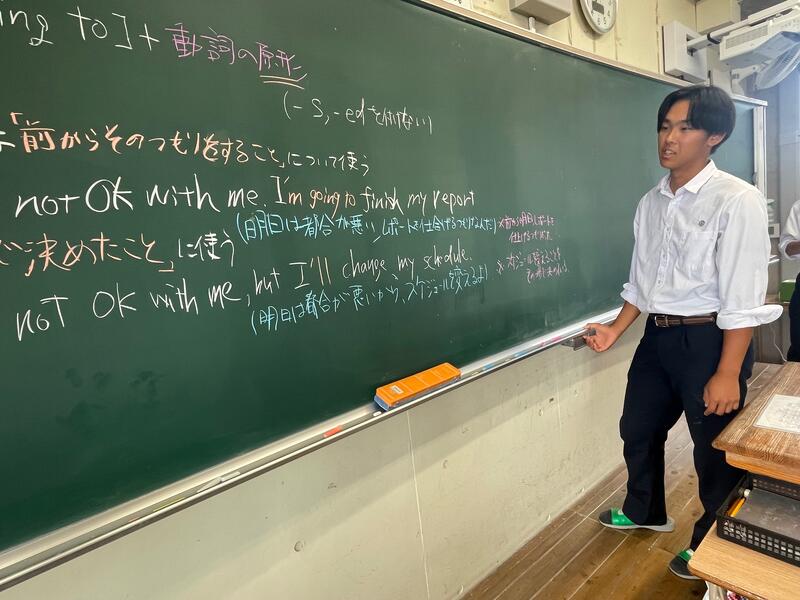 ing to] + 動詞の原形
(-s, -edを付けない)
「前からそのつもりをすること」について使う
not OK with me. I'm going to finish my report
(明日は都合が悪い、レポートを仕上げるつもりなんだ)
※前から明日レポートを
仕上げるつもりだった
決めたこと」に使う
not OK with me, but I'll change my schedule.
(明日は都合が悪いから、スケジュールを変えるよ)
※スケジュールを変えることを